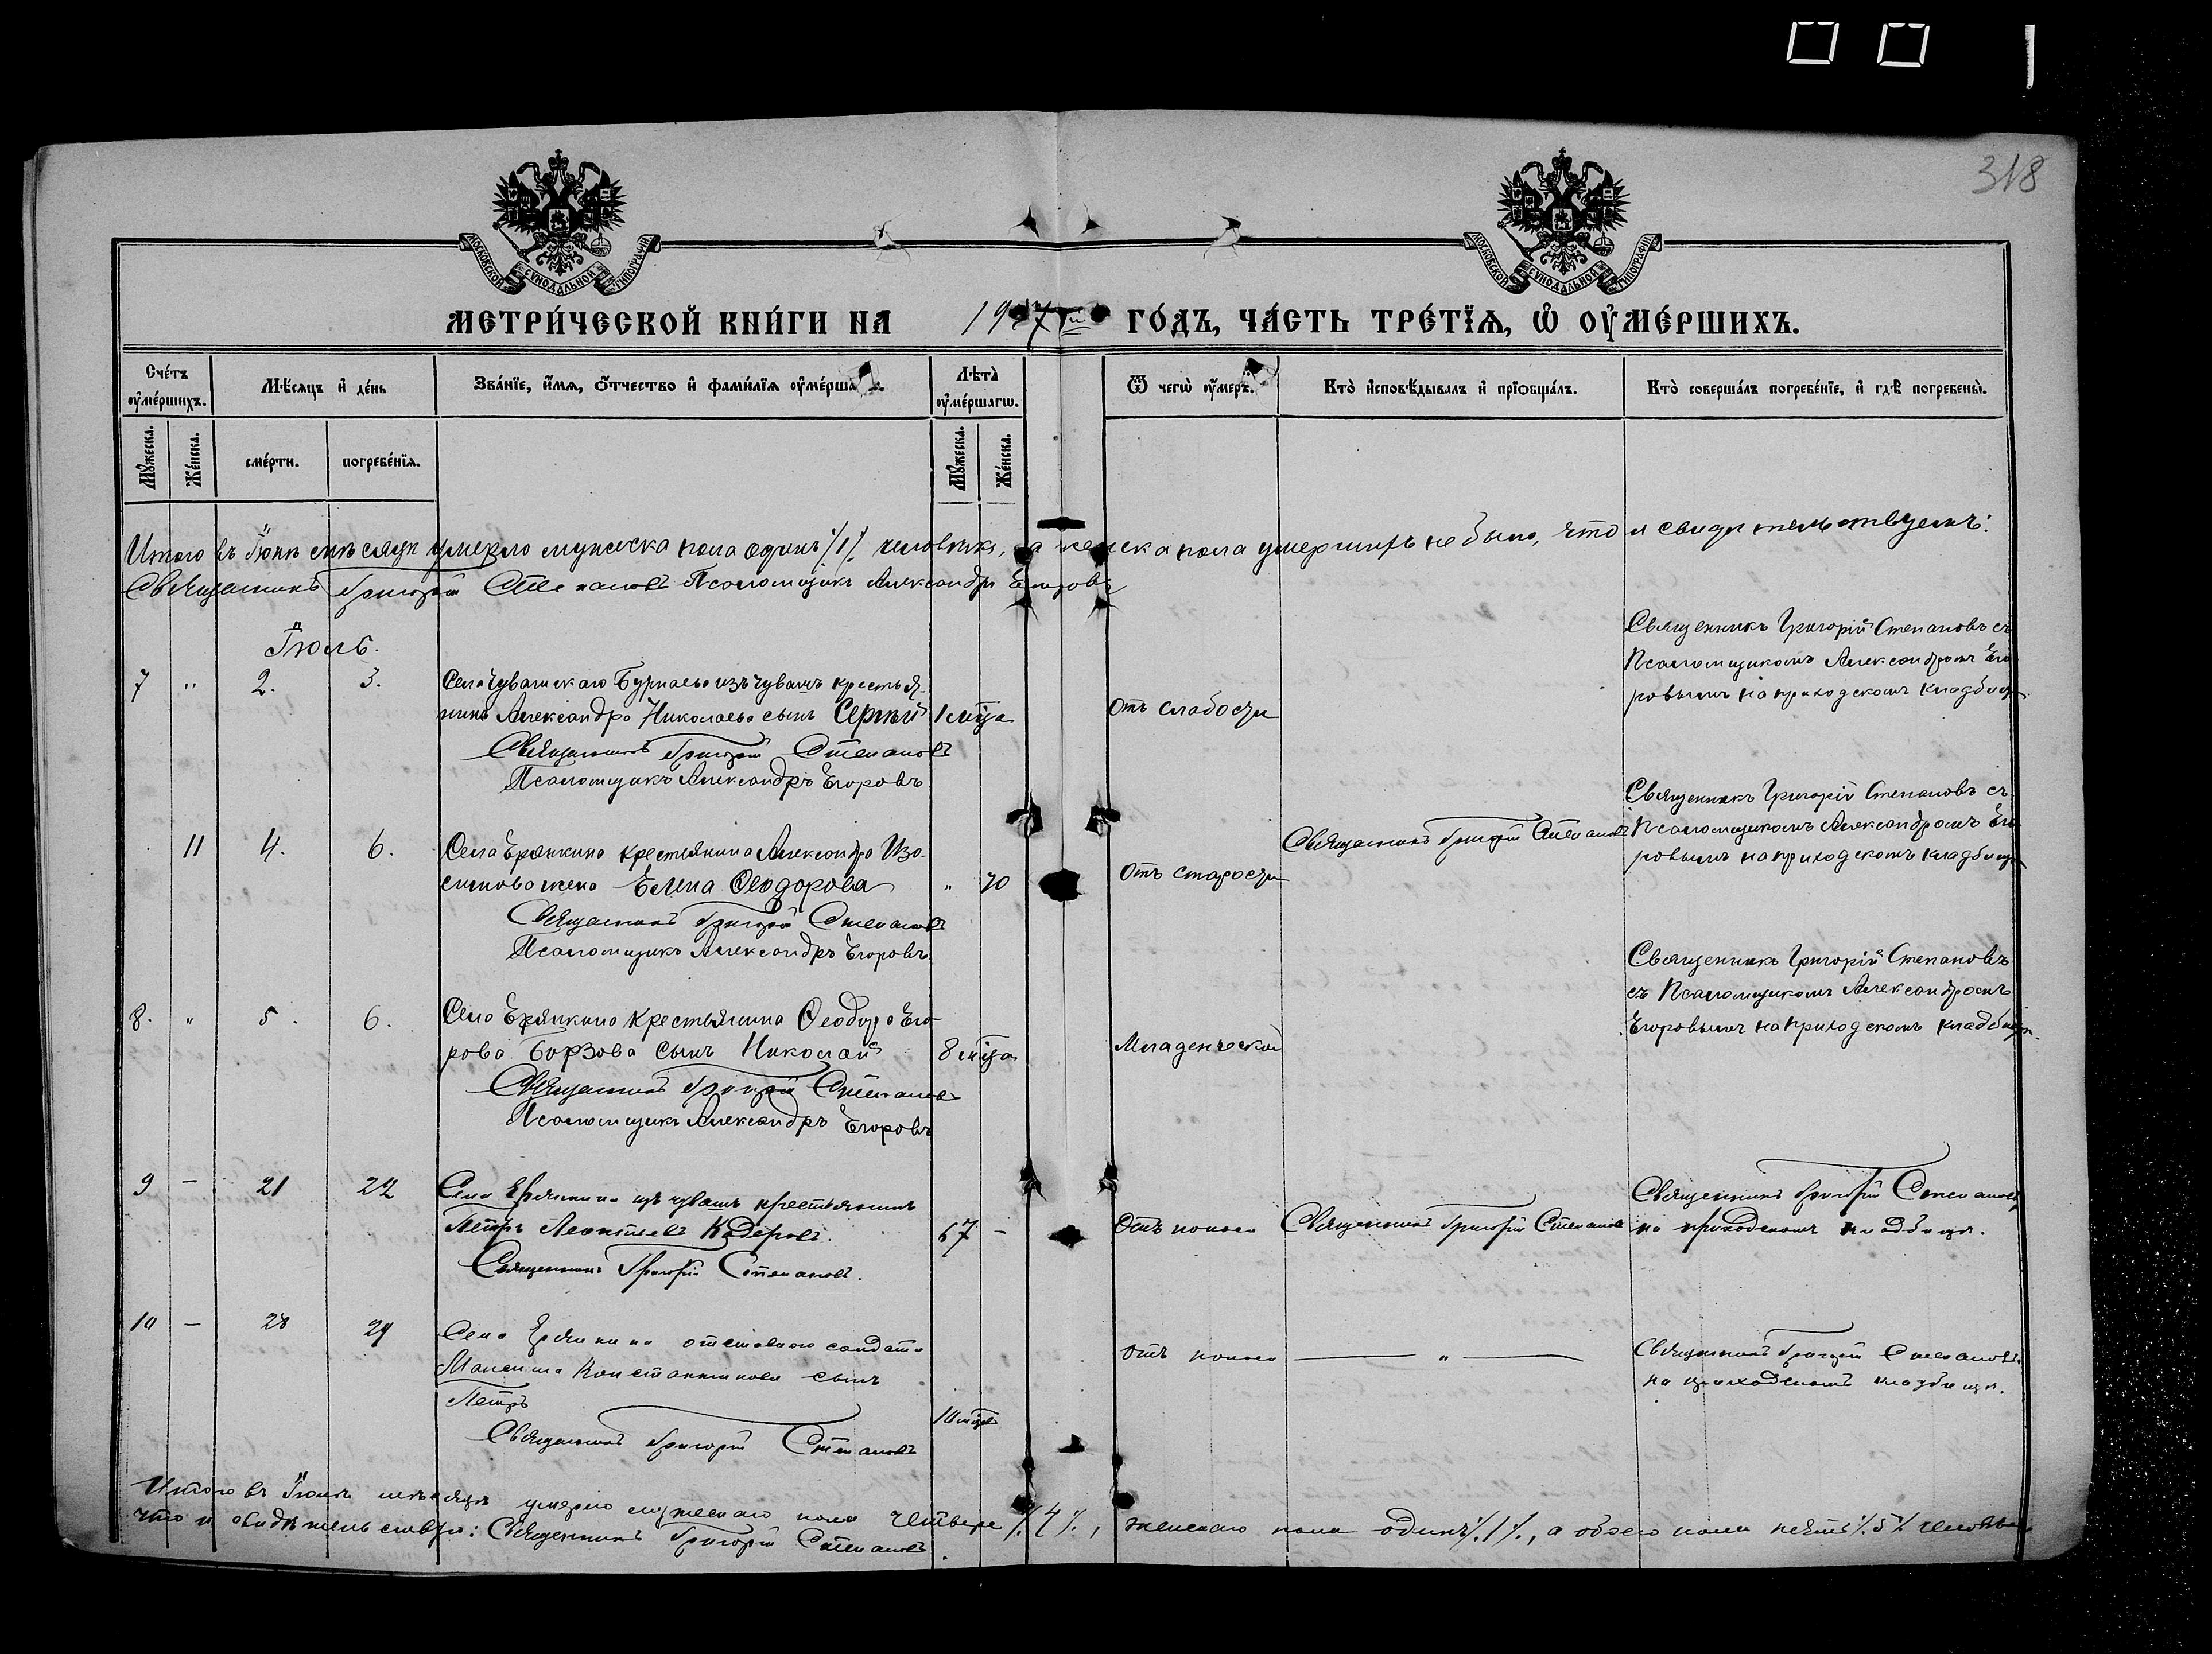 318
МОСКОВСКОЙ СУНОДАЛЬНОЙ ТИПОГРАФІИ
МОСКОВСКОЙ СУНОДАЛЬНОЙ ТИПОГРАФІИ
МЕТРИ́ЧЕСКОЙ КНИ́ГИ НА 19 7 ГО́ДЪ, ЧА́СТЬ ТРЕ́ТЇѦ, Ѡ҆ ОУ҆МЕ́РШИХЪ.
Сче́тъ оу҆ме́ршихъ.
Мѣ́сяцъ и҆ де́нь
Зва́нїе, и҆́мя, ѻ҆́тчество и҆ фами́лїя оу҆ме́рша
Лѣта̀ оу҆ме́ршагѡ.
Ѿ чегѡ̀ оу҆́меръ.
Кто̀ и҆сповѣ́дывалъ и҆ прїѻбща́лъ.
Кто̀ соверша́лъ погребе́нїе, и҆ гдѣ̀ погребены̀.
Му́жеска.
Же́нска.
сме́рти.
погребе́нїя.
Му́жеска.
Же́нска.
Итого въ Іюнѣ мѣсяцѣ умерло мужеска пола одинъ /1/ человѣкъ, а женска пола умершихъ не было, что и свидѣтельствуемъ:
Священникъ Григорій Степановъ Псаломщикъ Александръ Егоровъ
Іюль.
7 " 2. 3.
Села Чувашскаго Бурнаева изъ чувашъ крестья-
нина Александра Николаева сынъ Сергѣй 1 мѣца
Священникъ Григорій Степановъ
Псаломщикъ Александръ Егоровъ
Отъ слабости
Священникъ Григорій Степановъ съ
Псаломщикомъ Александромъ Его-
ровымъ на приходскомъ кладбищѣ
11 4. 6.
Села Ерыккина крестьянина Александра Изо-
симова жена Елена Ѳеодорова " 70
Священникъ Григорій Степановъ
Псаломщикъ Александръ Егоровъ
Отъ старости
Священникъ Григорій Степановъ
Священникъ Григорій Степановъ съ
Псаломщикомъ Александромъ Его-
ровымъ на приходскомъ кладбищѣ
8. " 5. 6.
Села крестьянина Ѳеодора Его-
рова Борзова сынъ Николай 8 мѣца
Священникъ Григорій Степановъ
Псаломщикъ Александръ Егоровъ
Младенческой
Священникъ Григорій Степановъ
съ Псаломщикомъ Александромъ
Егоровымъ на приходскомъ кладбищѣ.
9 — 21 22
Села изъ чувашъ крестьянинъ
Петръ Леонтьевъ Кадеровъ. 67 —
Священникъ Григорій Степановъ.
Отъ поноса
Священникъ Григорій Степановъ
Священникъ Григорій Степановъ
на приходскомъ кладбищѣ.
10 — 28 29
Села отставного солдата
Максима Константинова сынъ
Петръ
10 мѣце
Священникъ Григорій Степановъ
Отъ поноса
— " —
Священникъ Григорій Степановъ
на приходскомъ кладбищѣ.
Итого въ Іюлѣ мѣсяцѣ умерло мужескаго пола четверо /.4/., женскаго пола одинъ /.1/., а обоего пола пять /.5/. человѣкъ
что и свидѣтельствую: Священникъ Григорій Степановъ.